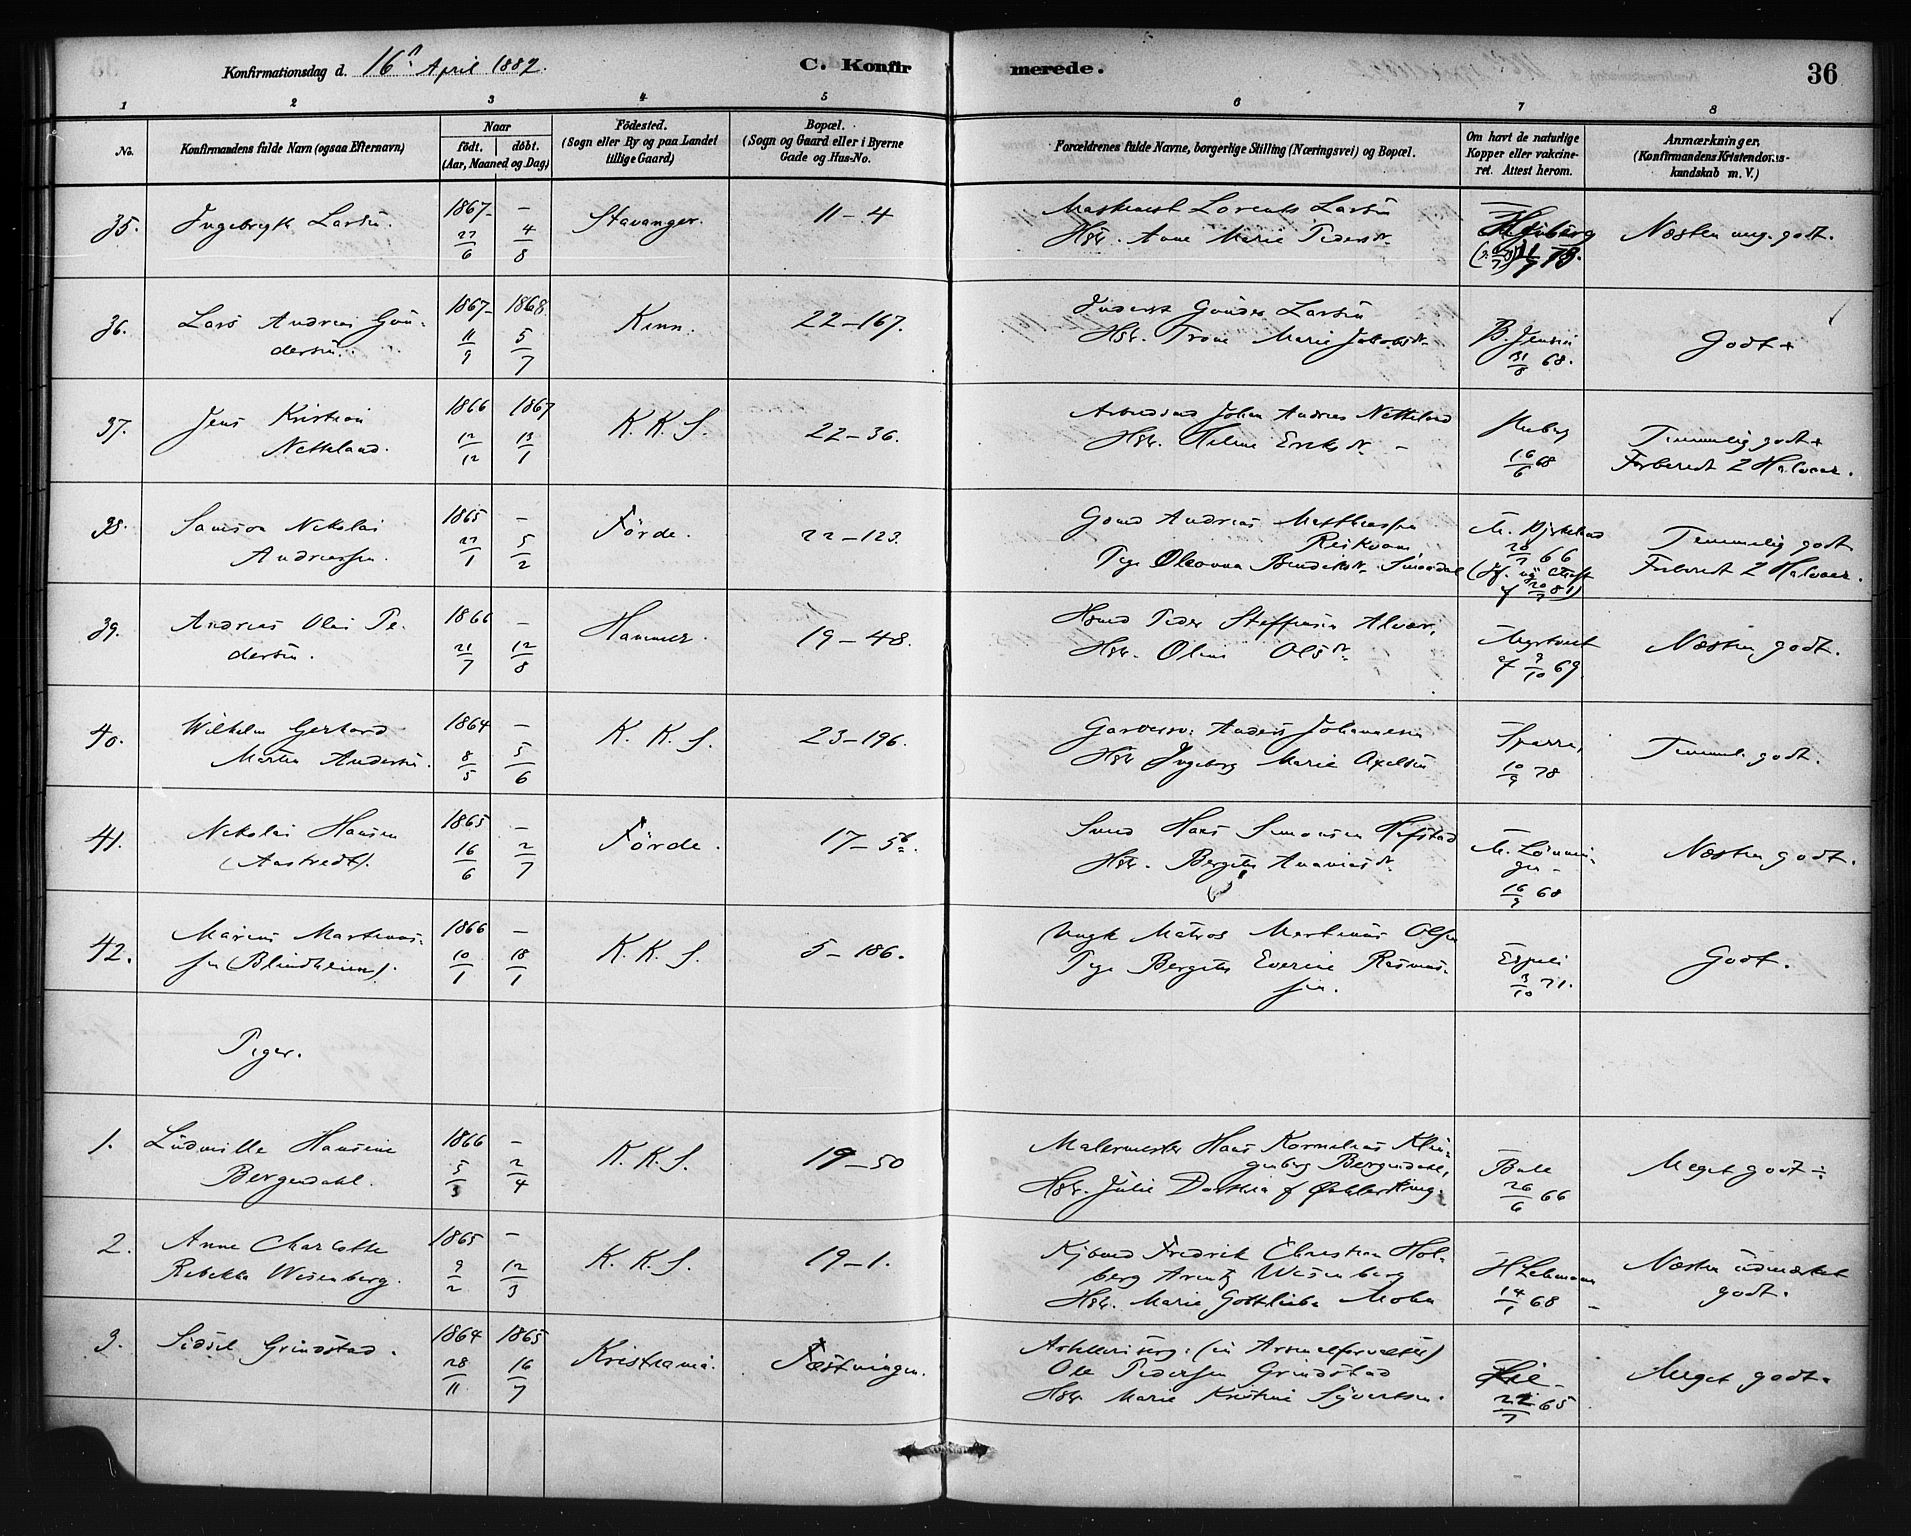 Konfirmationsdag d. 16 April 1882.
C. Konfirmerede.
36
1 2 3 4 5 6 7 8
No.
Konfirmandens fulde Navn (ogsaa Efternavn)
Naar
födt. döbt.
(Aar, Maaned og Dag)
Födested.
(Sogn eller By og paa Landet
tillige Gaard)
Bopæl.
(Sogn og Gaard eller i Byerne
Gade og Hus-No.
Forældrenes fulde Navne, borgerlige Stilling (Næringsvei) og Bopæl.
Om havt de naturlige
Kopper eller vakcine-
ret. Attest herom.
Anmærkninger,
(Konfirmandens Kristendoms-
kundskab m. V.)
35. Ingebrigt Larsen 1867 22/6 – 4/8 Stavanger. 11–4
Lorents Larsen
Hstr. Anne Marie Pedersdr.
Næsten meg. godt.
36. Lars Andreas Gun-
dersen. 1867 11/9 1868 5/7 Kinn. 22–167.
Gunder Larsen
Hstr. Marie Jakobsdr.
B. Jensen
31/8 68.
Godt +
37. Jens Kristian
Netteland. 1866 12/12 1867 13/1 K. K. S. 22–36.
Johan Andreas Netteland
Hstr. Helene Eriksdr. –
16/6 68
Temmelig godt +
Forberedt 2 Halvaar.
38. Samson Nikolai
Andreassen. 1865 22/1 – 5/2 Förde. 22–123.
Gmd Andreas Matthiassen
Reikvam
Pige Oleovna Bendiksdr.
28/7 66
Temmelig godt
Forberedt 2 Halvaar.
39. Andreas Olai Pe-
dersen. 1866 21/7 – 12/8 Hammer. 19–48.
Hsmd Peder Steffensen Alvær,
Hstr. Oline Olsdr.
Myrtvedt
af 9/10 69.
Næsten godt.
40. Wilhelm Gerhard
Martin Andersen. 1864 8/5 – 5/6 K. K. S. 23–196.
Garversv: Anders Johannesen
Hstr Ingeborg Marie Axelsen
Sparre,
10/9 78
Temmel. godt.
41. Nikolai Hansen
(Aastvedt). 1865 16/6 – 2/7 Förde. 17–5b.
Smed Hans Simonsen Hafstad
Hstr. Bergitte Ananiasdr.
16/9 68
Næsten godt.
42. Marius Martinus-
sen (Blindheim). 1866 10/1 – 18/1 K. K. S. 5–186.
Ungk Matros Martinus Olsen
Pige Bergitte Everine Rasmus-
sen.
Espeli
3/10 71.
Godt.
Piger.
1. Ludmille Hansine
Bergendahl. 1866 5/3 – 2/4 K. K. S. 19–50
Malermester Hans Kornelius Klin-
genberg Bergendahl,
Hstr. Julie Dorthea f
26/6 66
Meget godt ÷
2. Anne Charlotte
Rebekka Wesenberg. 1865 9/2 – 12/3 K. K. S. 19–1.
Kjbmd Fredrik Christian Hol-
berg Arentz Wesenberg
Hstr. Marie Gottlieba Mohn
H Lehmann
14/1 68 –
Næsten udmærket
godt.
3. Sidsel Grindstad. 1864 28/11 1865 16/7 Kristiania. Fæstningen.
Artilleriserg: (nu Arsenalforvalter)
Ole Pedersen Grindstad
Hstr Marie Kristine Syvertsen.
22/7 65
Meget godt.